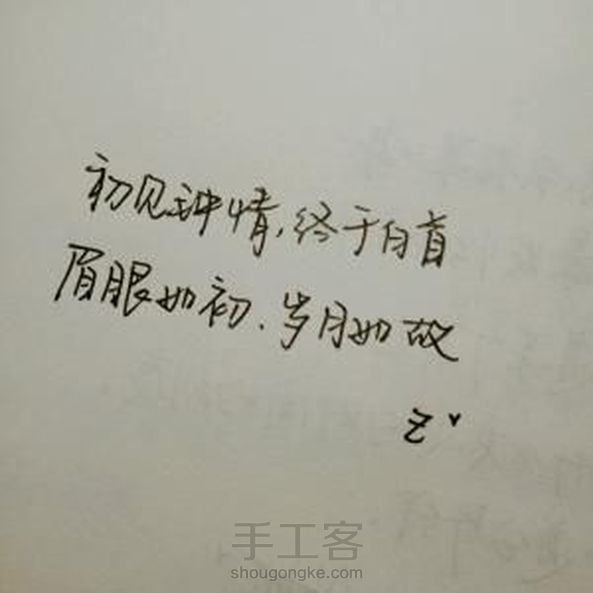 初见钟情,终于白首
眉眼如初、岁月如故
Z
手工客
shougongke.com